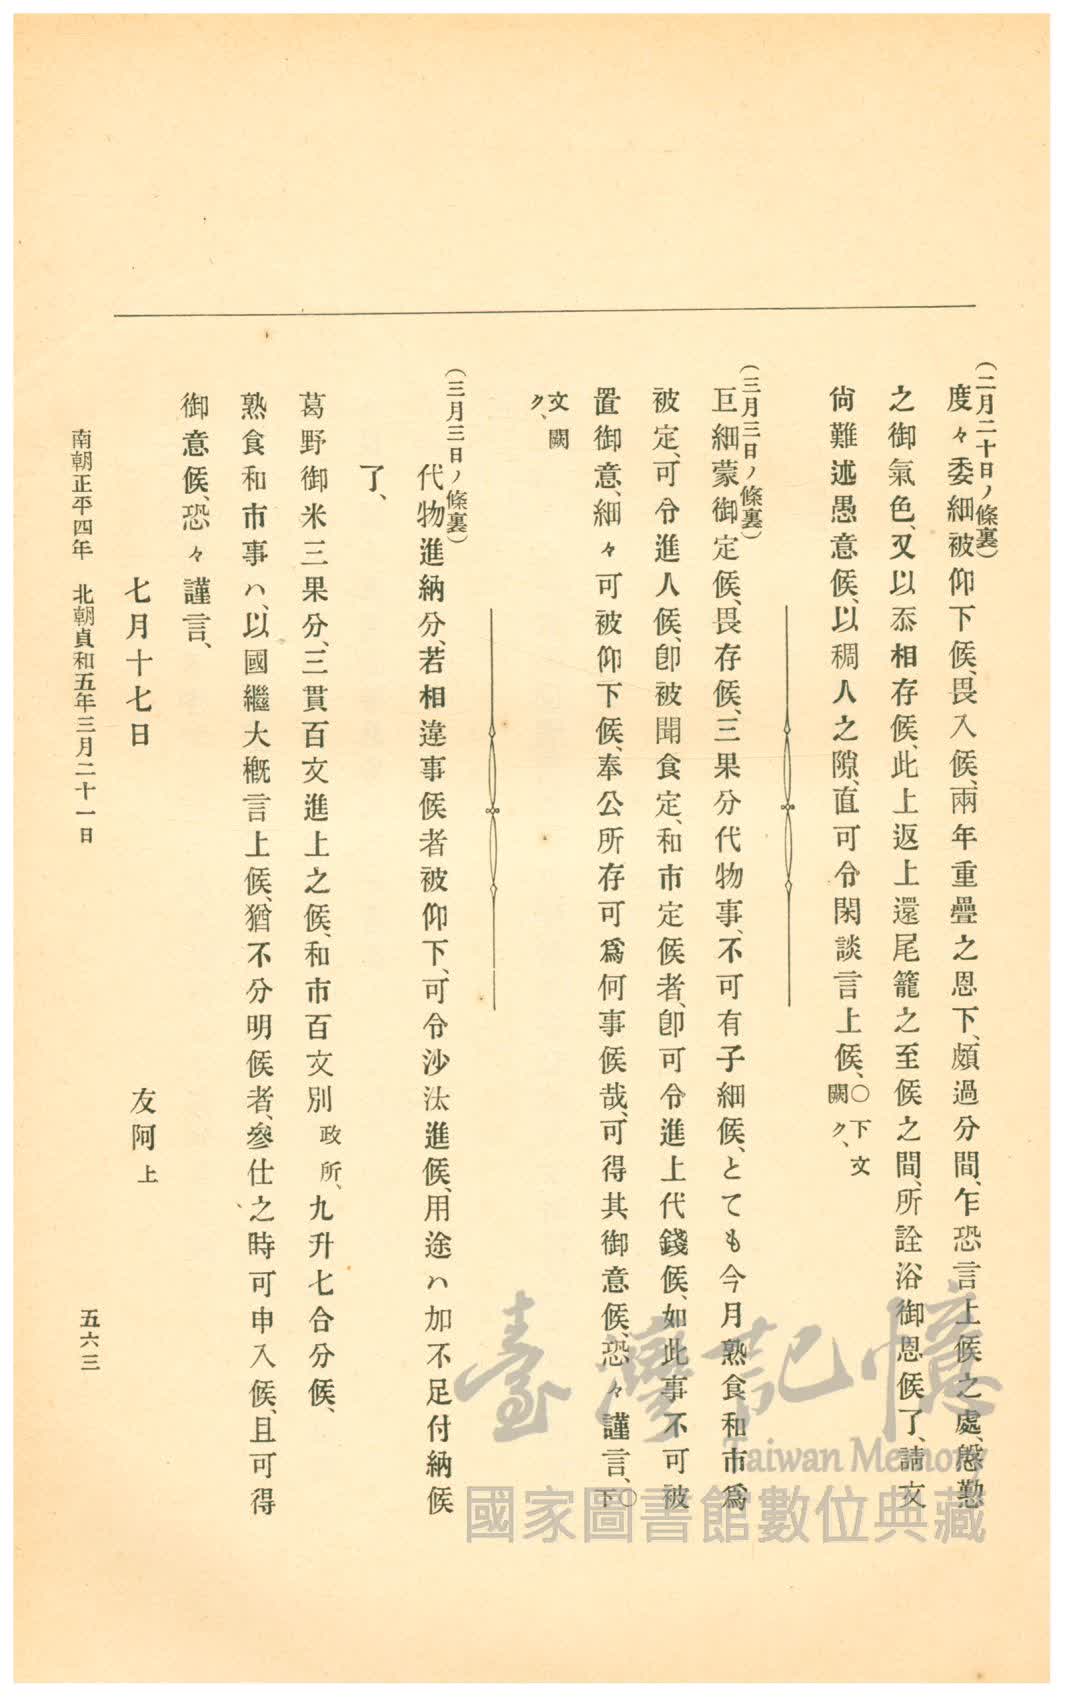 (二月二十日ノ條裏)
度々委細被仰下候、畏入候、兩年重疊之恩下、頗過分間、乍恐言上候之處、慇懃
之御氣色、又以忝相存候、此上返上還尾籠之至候之間、所詮浴御恩候了、請文
尙難述愚意候、以稠人之隙、直可令閑談言上候、○下文闕ク、
(三月三日ノ條裏)
巨細蒙御定候、畏存候、三果分代物事、不可有子細候、とても今月熟食和市爲
被定、可令進人候、卽被聞食定、和市定候者、卽可令進上代錢候、如此事不可被
置御意、細々可被仰下候、奉公所存可爲何事候哉、可得其御意候、恐々謹言、○下
文闕ク、
(三月三日ノ條裏)
代物進納分、若相違事候者被仰下、可令沙汰進候、用途ハ加不足付納候
了、
葛野御米三果分、三貫百文進上之候、和市百文別政所、九升七合分候、
熟食和市事ハ、以國繼大槪言上候、猶不分明候者、參仕之時可申入候、且可得
御意候、恐々謹言、
七月十七日 友阿上
南朝正平四年 北朝貞和五年三月二十一日 五六三
臺灣記憶
Taiwan Memory
國家圖書館數位典藏